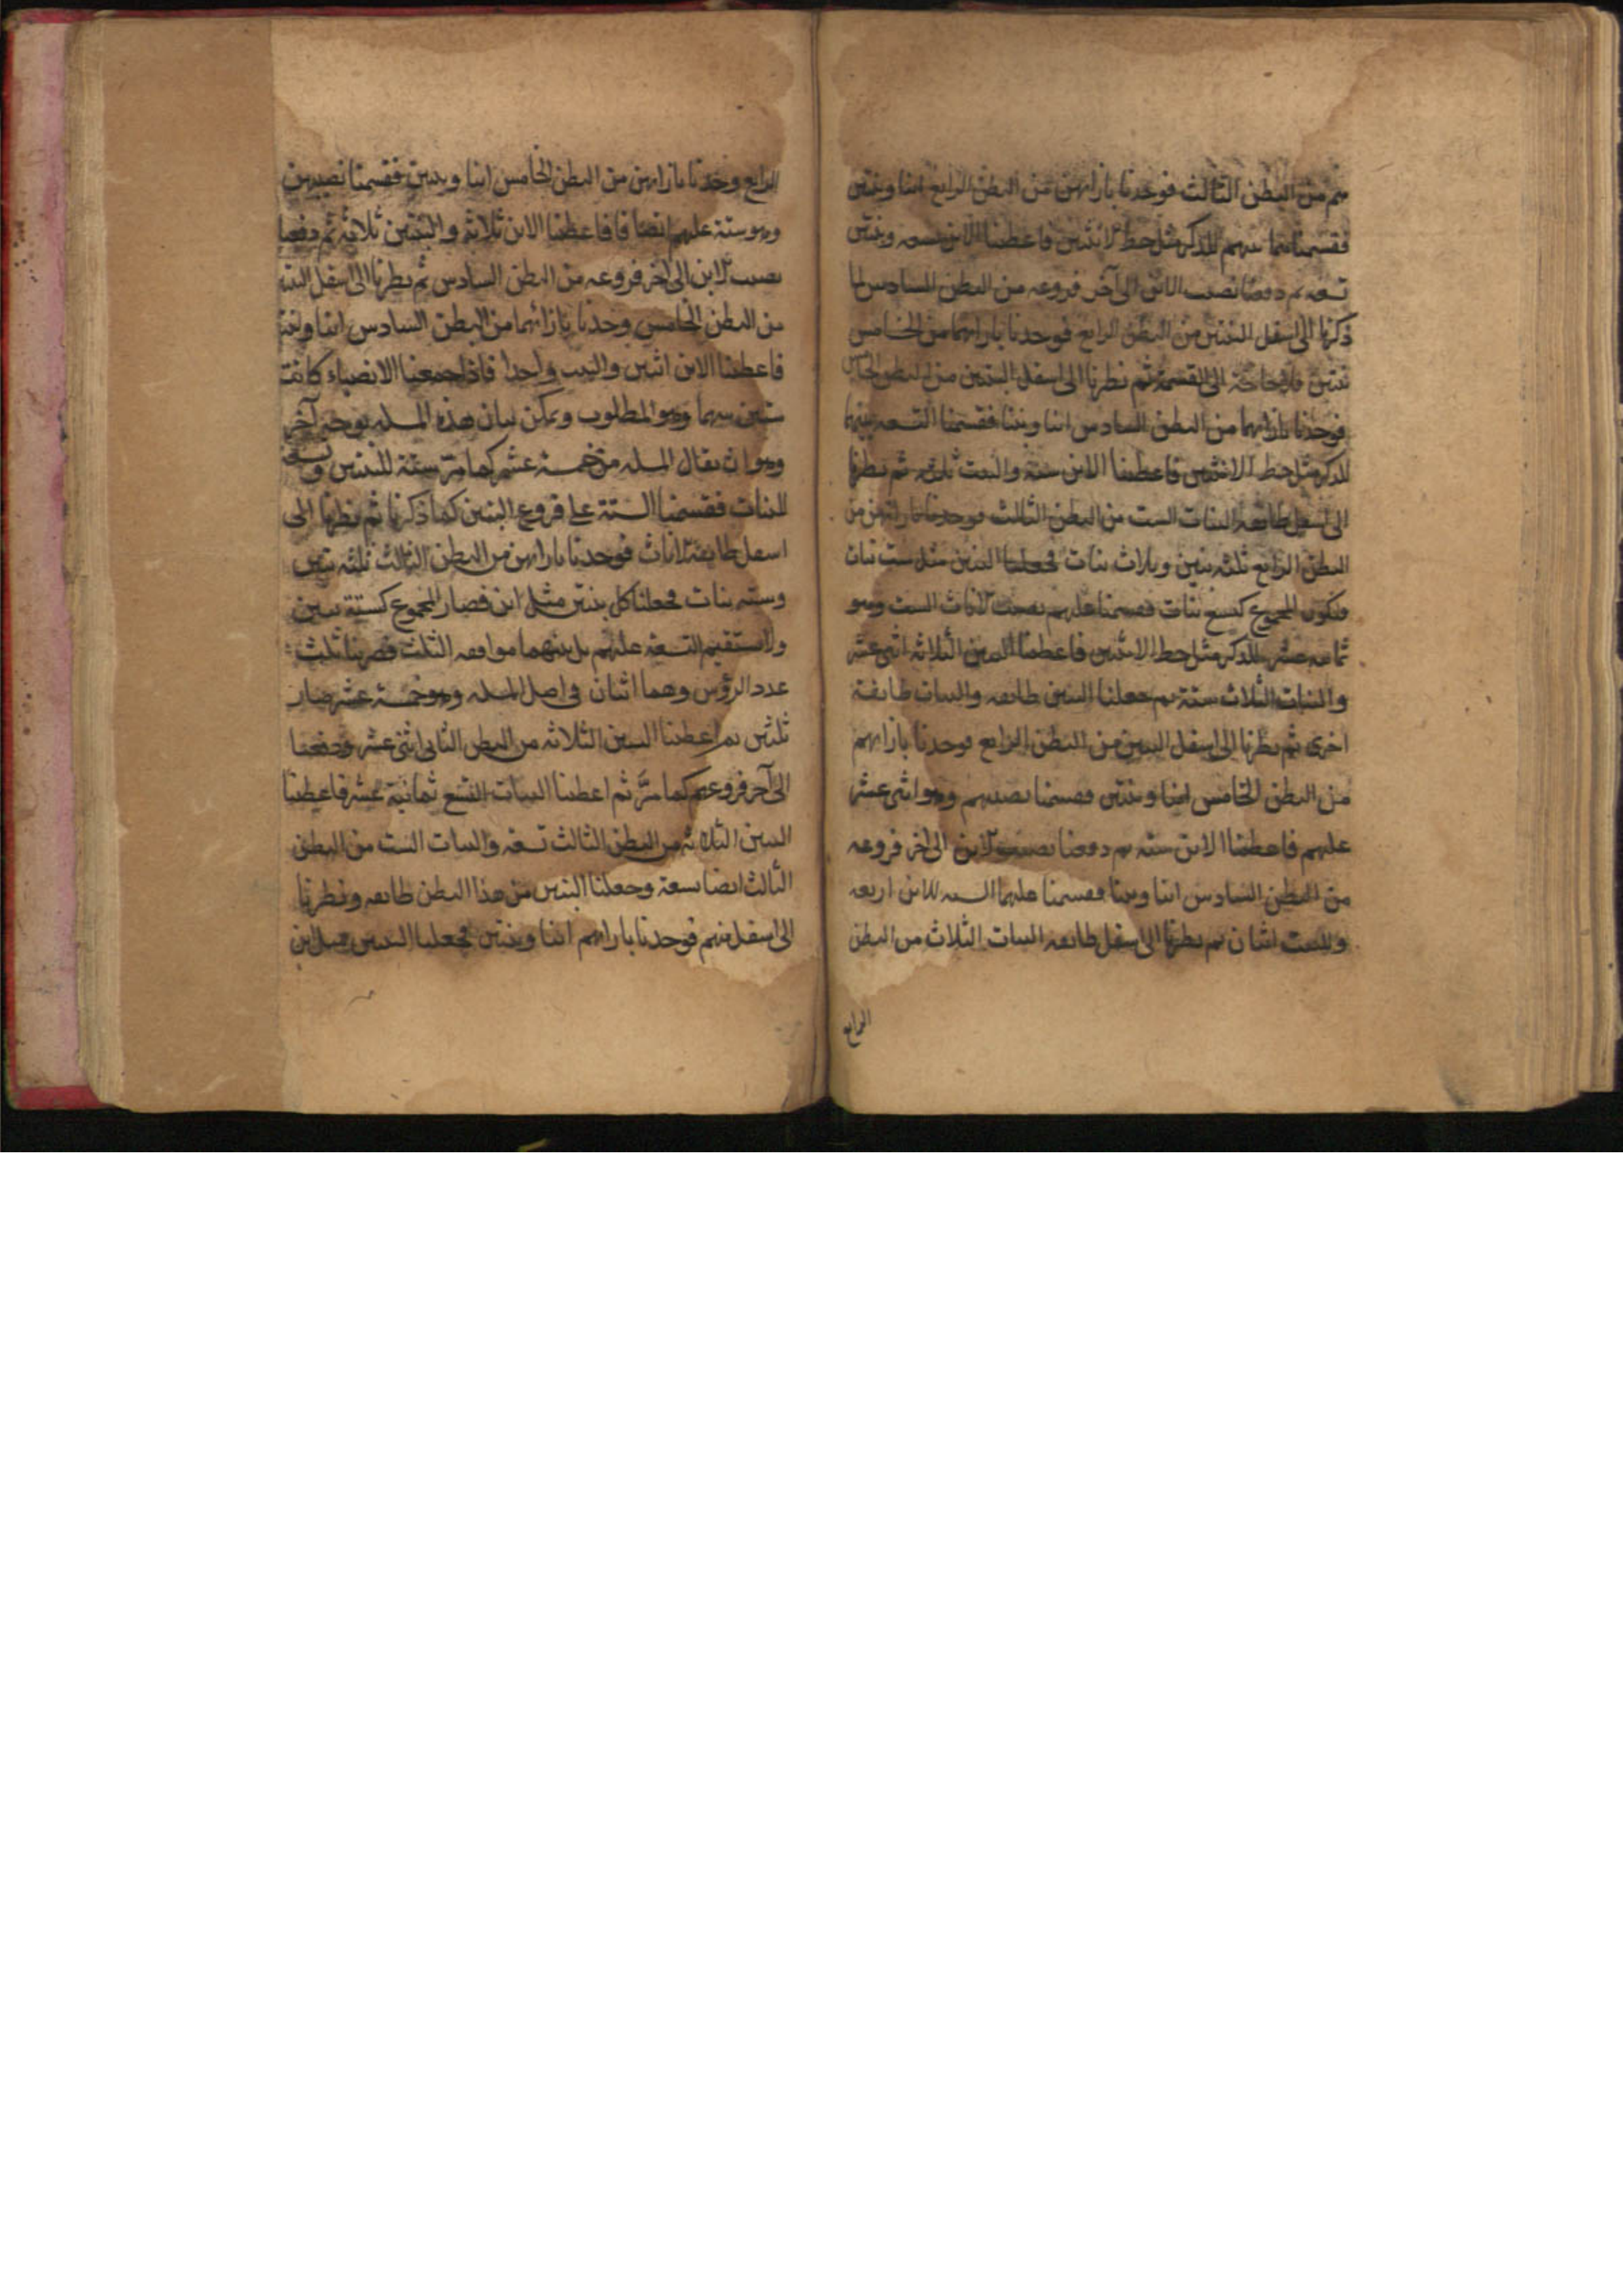 منهم من البطن الثالث فوجدنا بازائهن من البطن الرابع ابنا وبنتين
فقسمنا بينهم للذكر مثل حظ الانثيين فاعطينا الابن تسعة وبنتين
تسعة ثم دفعنا نصيب الابن الى آخر فروعه من البطن السادس لما
ذكرنا الى اسفل البنتين من البطن الرابع فوجدنا بازائهما من الخامس
بنتين فلا حاجة الى القسمة ثم نظرنا الى اسفل البنتين من البطن الخامس
فوجدنا بازائهما من البطن السادس ابنا وبنتا فقسمنا التسعة بينهما
للذكر مثل حظ الانثيين فاعطينا الابن ستة والبنت ثلثة ثم نظرنا
الى اسفل طايفة البنات الست من البطن الثالث فوجدنا بازائهن من
البطن الرابع ثلثة بنين وثلاث بنات فجعلنا البنين مثل ست بنات
فيكون المجموع كتسع بنات فقسمنا عليهم نصيب الاناث الست وهو
ثمانية عشر للذكر مثل حظ الانثيين فاعطينا البنين الثلاثة اثنى عشر
والبنات الثلاث ستة ثم جعلنا البنين طايفة والبنات طايفة
اخرى ثم نظرنا الى اسفل البنين من البطن الرابع فوجدنا بازائهم
من البطن الخامس ابنا وبنتين فقسمنا نصيبهم وهو اثنى عشر
عليهم فاعطينا الابن ستة ثم دفعنا نصيب الابن الى آخر فروعه
من البطن السادس ابنا وبنتا فقسمنا عليهما الستة للابن اربعة
وللبنت اثنان ثم نظرنا الى اسفل طايفة البنات الثلاث من البطن
الرابع
الرابع وجدنا بازائهن من البطن الخامس ابنا وبنتين فقسمنا نصيبهن
وهو ستة عليهم ايضا فاعطينا الابن ثلاثة والبنتين ثلاثة ثم دفعنا
نصيب الابن الى آخر فروعه من البطن السادس ثم نظرنا الى اسفل البنتين
من البطن الخامس وجدنا بازائهما من البطن السادس ابنا وبنتا
فاعطينا الابن اثنين والبنت واحدا فاذا جمعنا الانصباء كانت
ستين سهما وهو المطلوب ويمكن بيان هذه المسله بوجه آخر
وهو ان يقال المسله من خمسة عشر كما مر ستة للبنين وتسعة
للبنات فقسمنا الستة على فروع البنين كما ذكرنا ثم نظرنا الى
اسفل طايفة الاناث فوجدنا بازائهن من البطن الثالث ثلثة بنين
وستة بنات فجعلنا كل بنتين مثل ابن فصار المجموع كستة بنين
ولا تستقيم التسعة عليهم بل بينهما موافقة الثلث فضربنا ثلث
عدد الرؤس وهما اثنان في اصل المسله وهو خمسة عشر صار
ثلثين ثم اعطينا البنين الثلاثة من البطن الثاني اثنى عشر ودفعنا
الى آخر فروعهم كما مر ثم اعطينا البنات التسع ثمانية عشر فاعطينا
البنين الثلاثة من البطن الثالث تسعة والبنات الست من البطن
الثالث ايضا تسعة وجعلنا البنين من هذا البطن طايفة ونظرنا
الى اسفل منهم فوجدنا بازائهم ابنا وبنتين فجعلنا البنتين مثل ابن